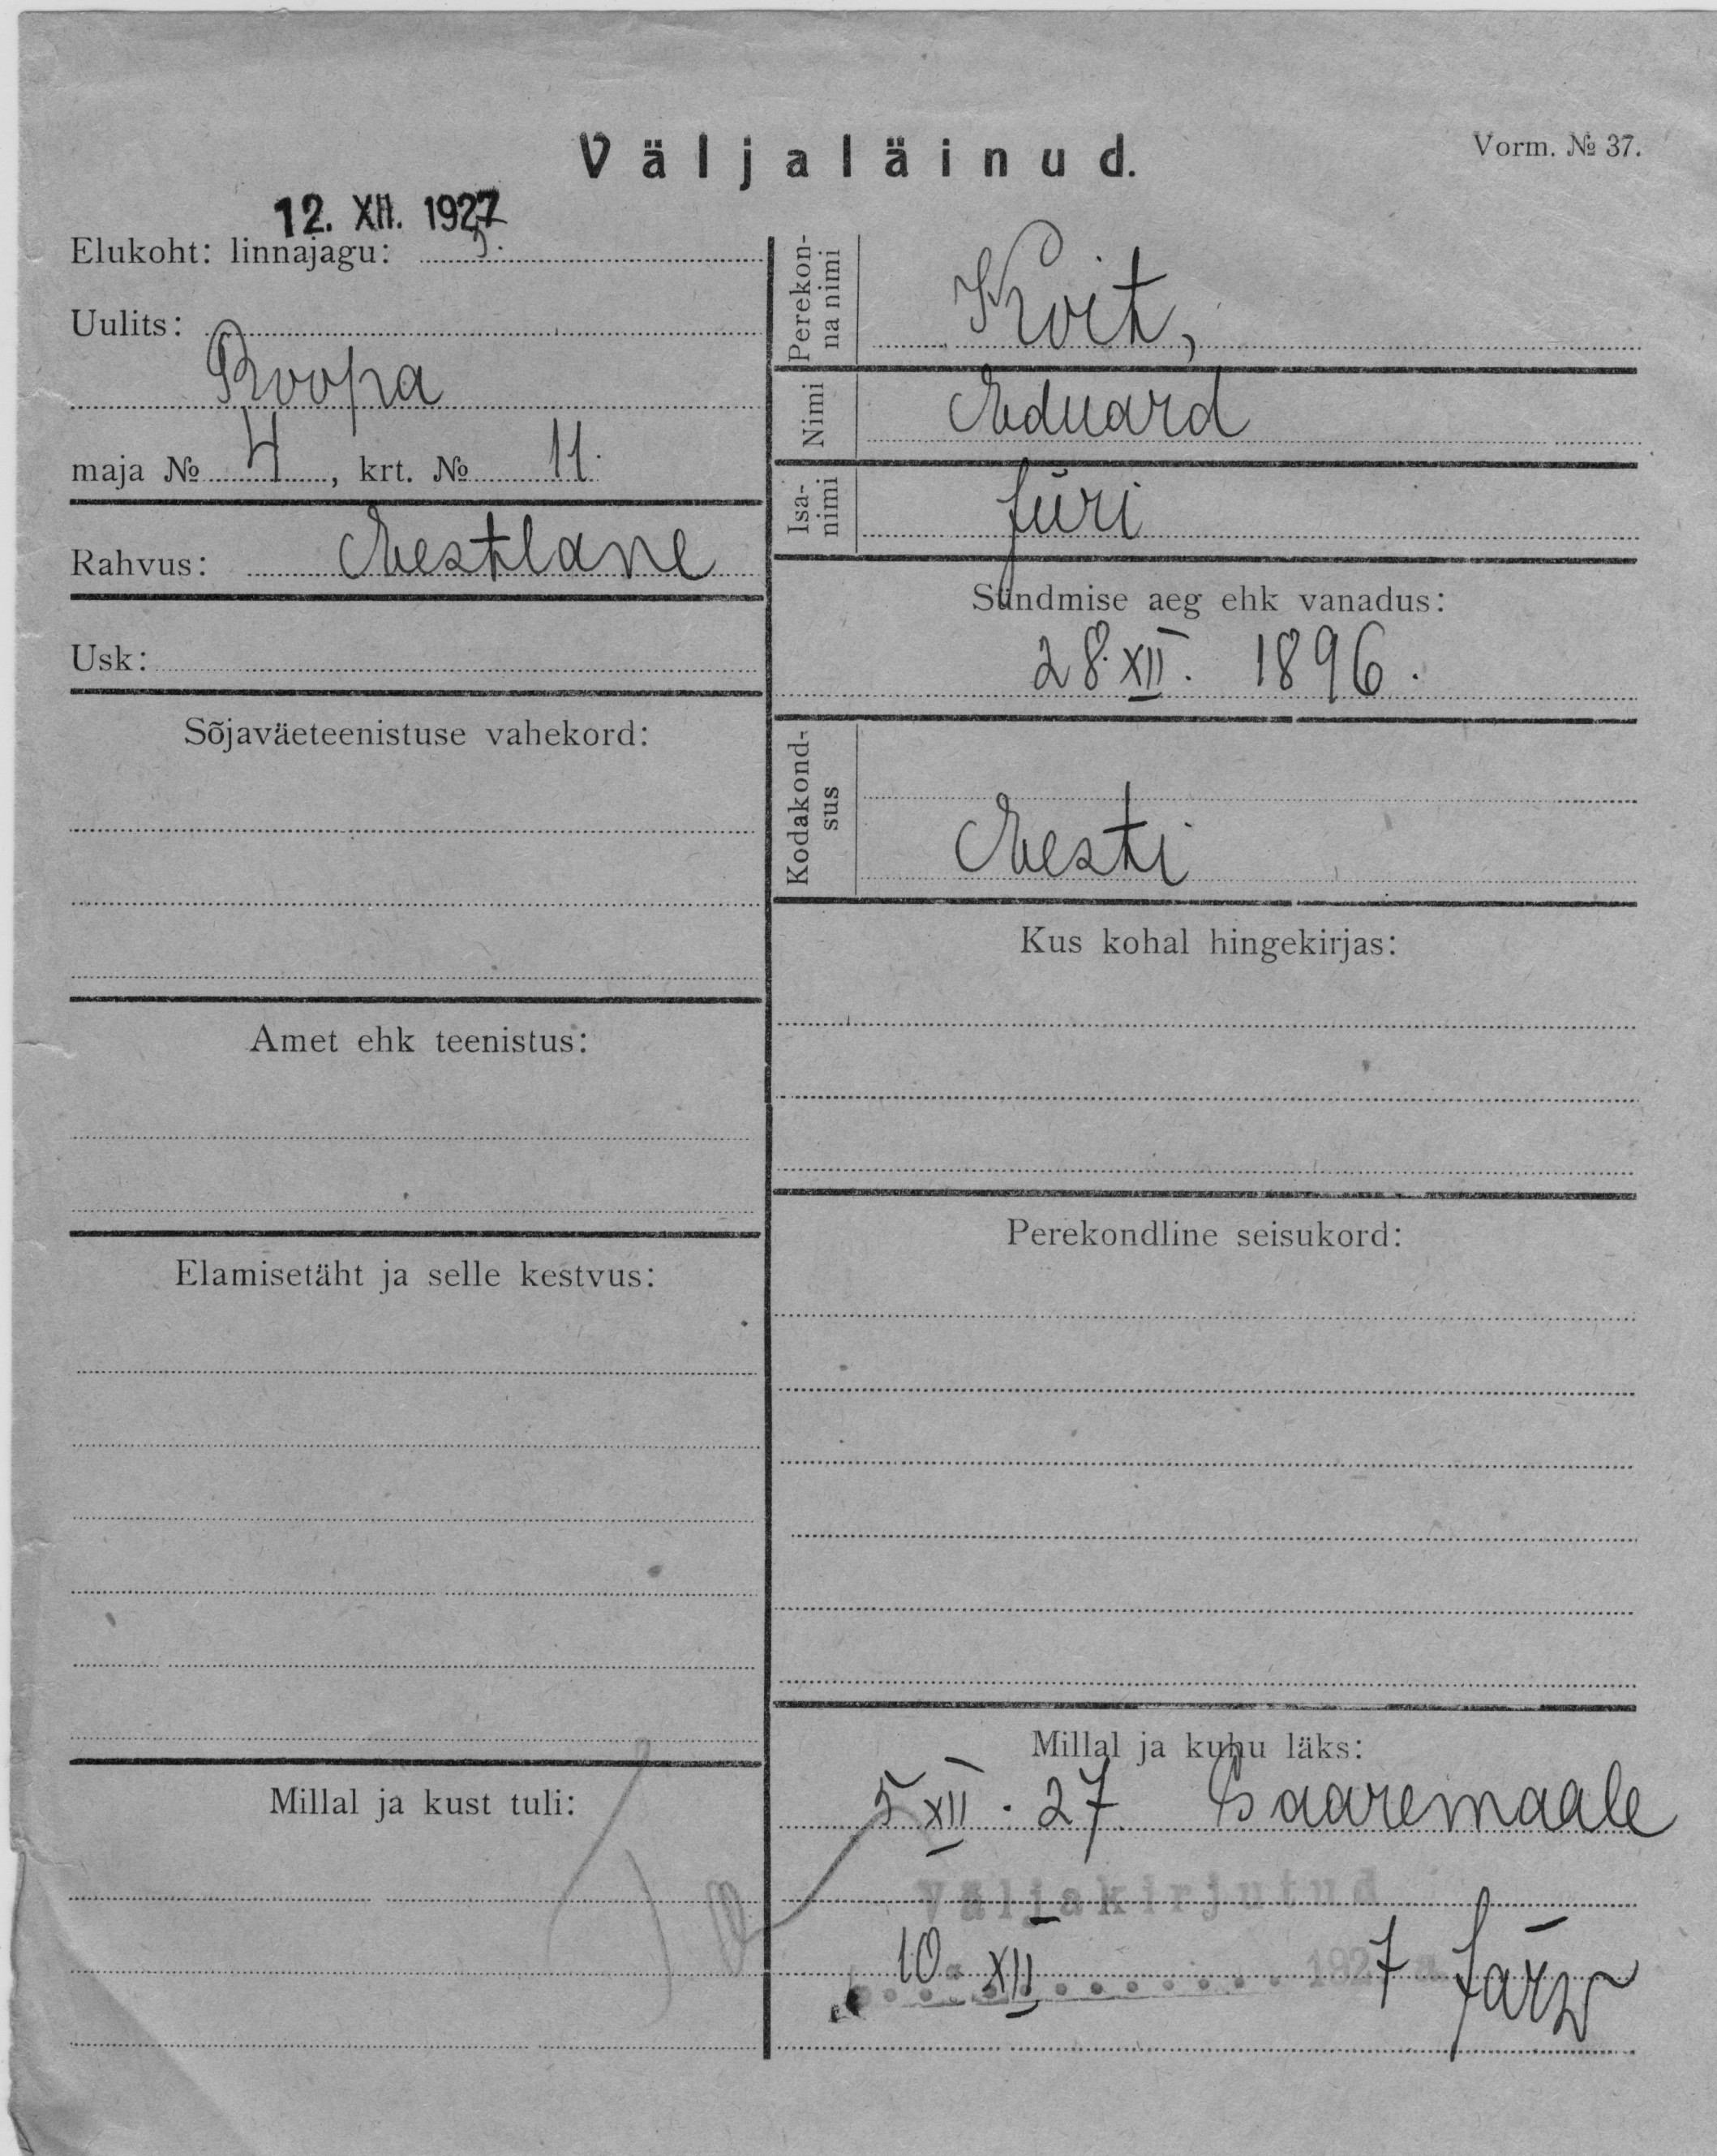 Väljaläinud.
Vorm. № 37.
12. XII. 1927
Elukoht: linnajagu: 5.
Uulits:
Roopa
maja № 4, krt. № 11.
Rahvus: Eestlane
Usk:
Sõjaväeteenistuse vahekord:
Amet ehk teenistus:
Elamisetäht ja selle kestvus:
Millal ja kust tuli:
Perekon-
na nimi
Koit,
Nimi Eduard
Isa-
nimi
Jüri
Sündmise aeg ehk vanadus:
28. XII. 1896.
Kodakond-
sus
Eesti
Kus kohal hingekirjas:
Perekondline seisukord:
Millal ja kuhu läks:
5 XII. 27. Saaremaale
Väljakirjutud
10. XII 1927 Järw